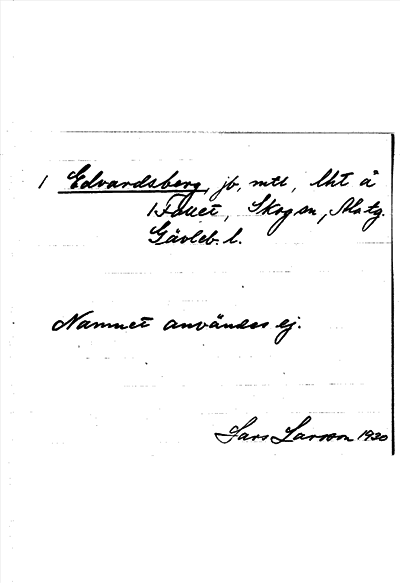 1 Edvardsberg, jb, mtl, lht å
1 Fallet, Skog sn, Ala tg.
Gävleb. l.
Namnet användes ej.
Lars Larsson 1930